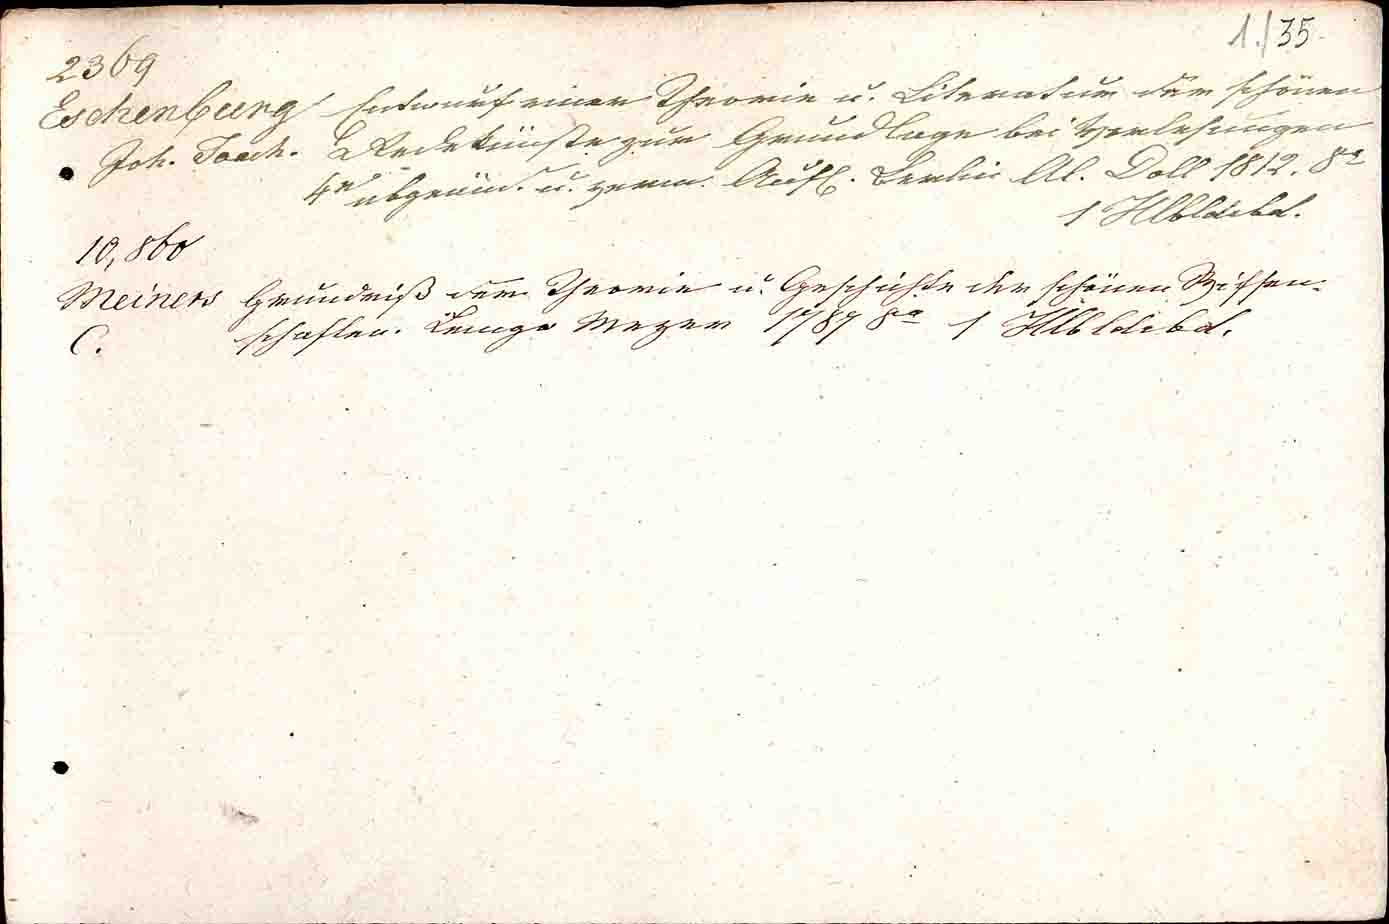 1./35.
2369
Eschenburg Entwurf einer Theorie u. Literatur der schönen
Joh. Joach. Redekünste zur Grundlage bei Vorlesungen
4e abgeänd. u. verm. Aufl. Berlin Al. Doll 1812. 8a
1 Hlbldrbd.
10,860
Meiners Grundriß der Theorie u. Geschichte der schönen Wissen-
C. schaften. Lemgo Meyer 1787 8a 1 Hlbldrbd.